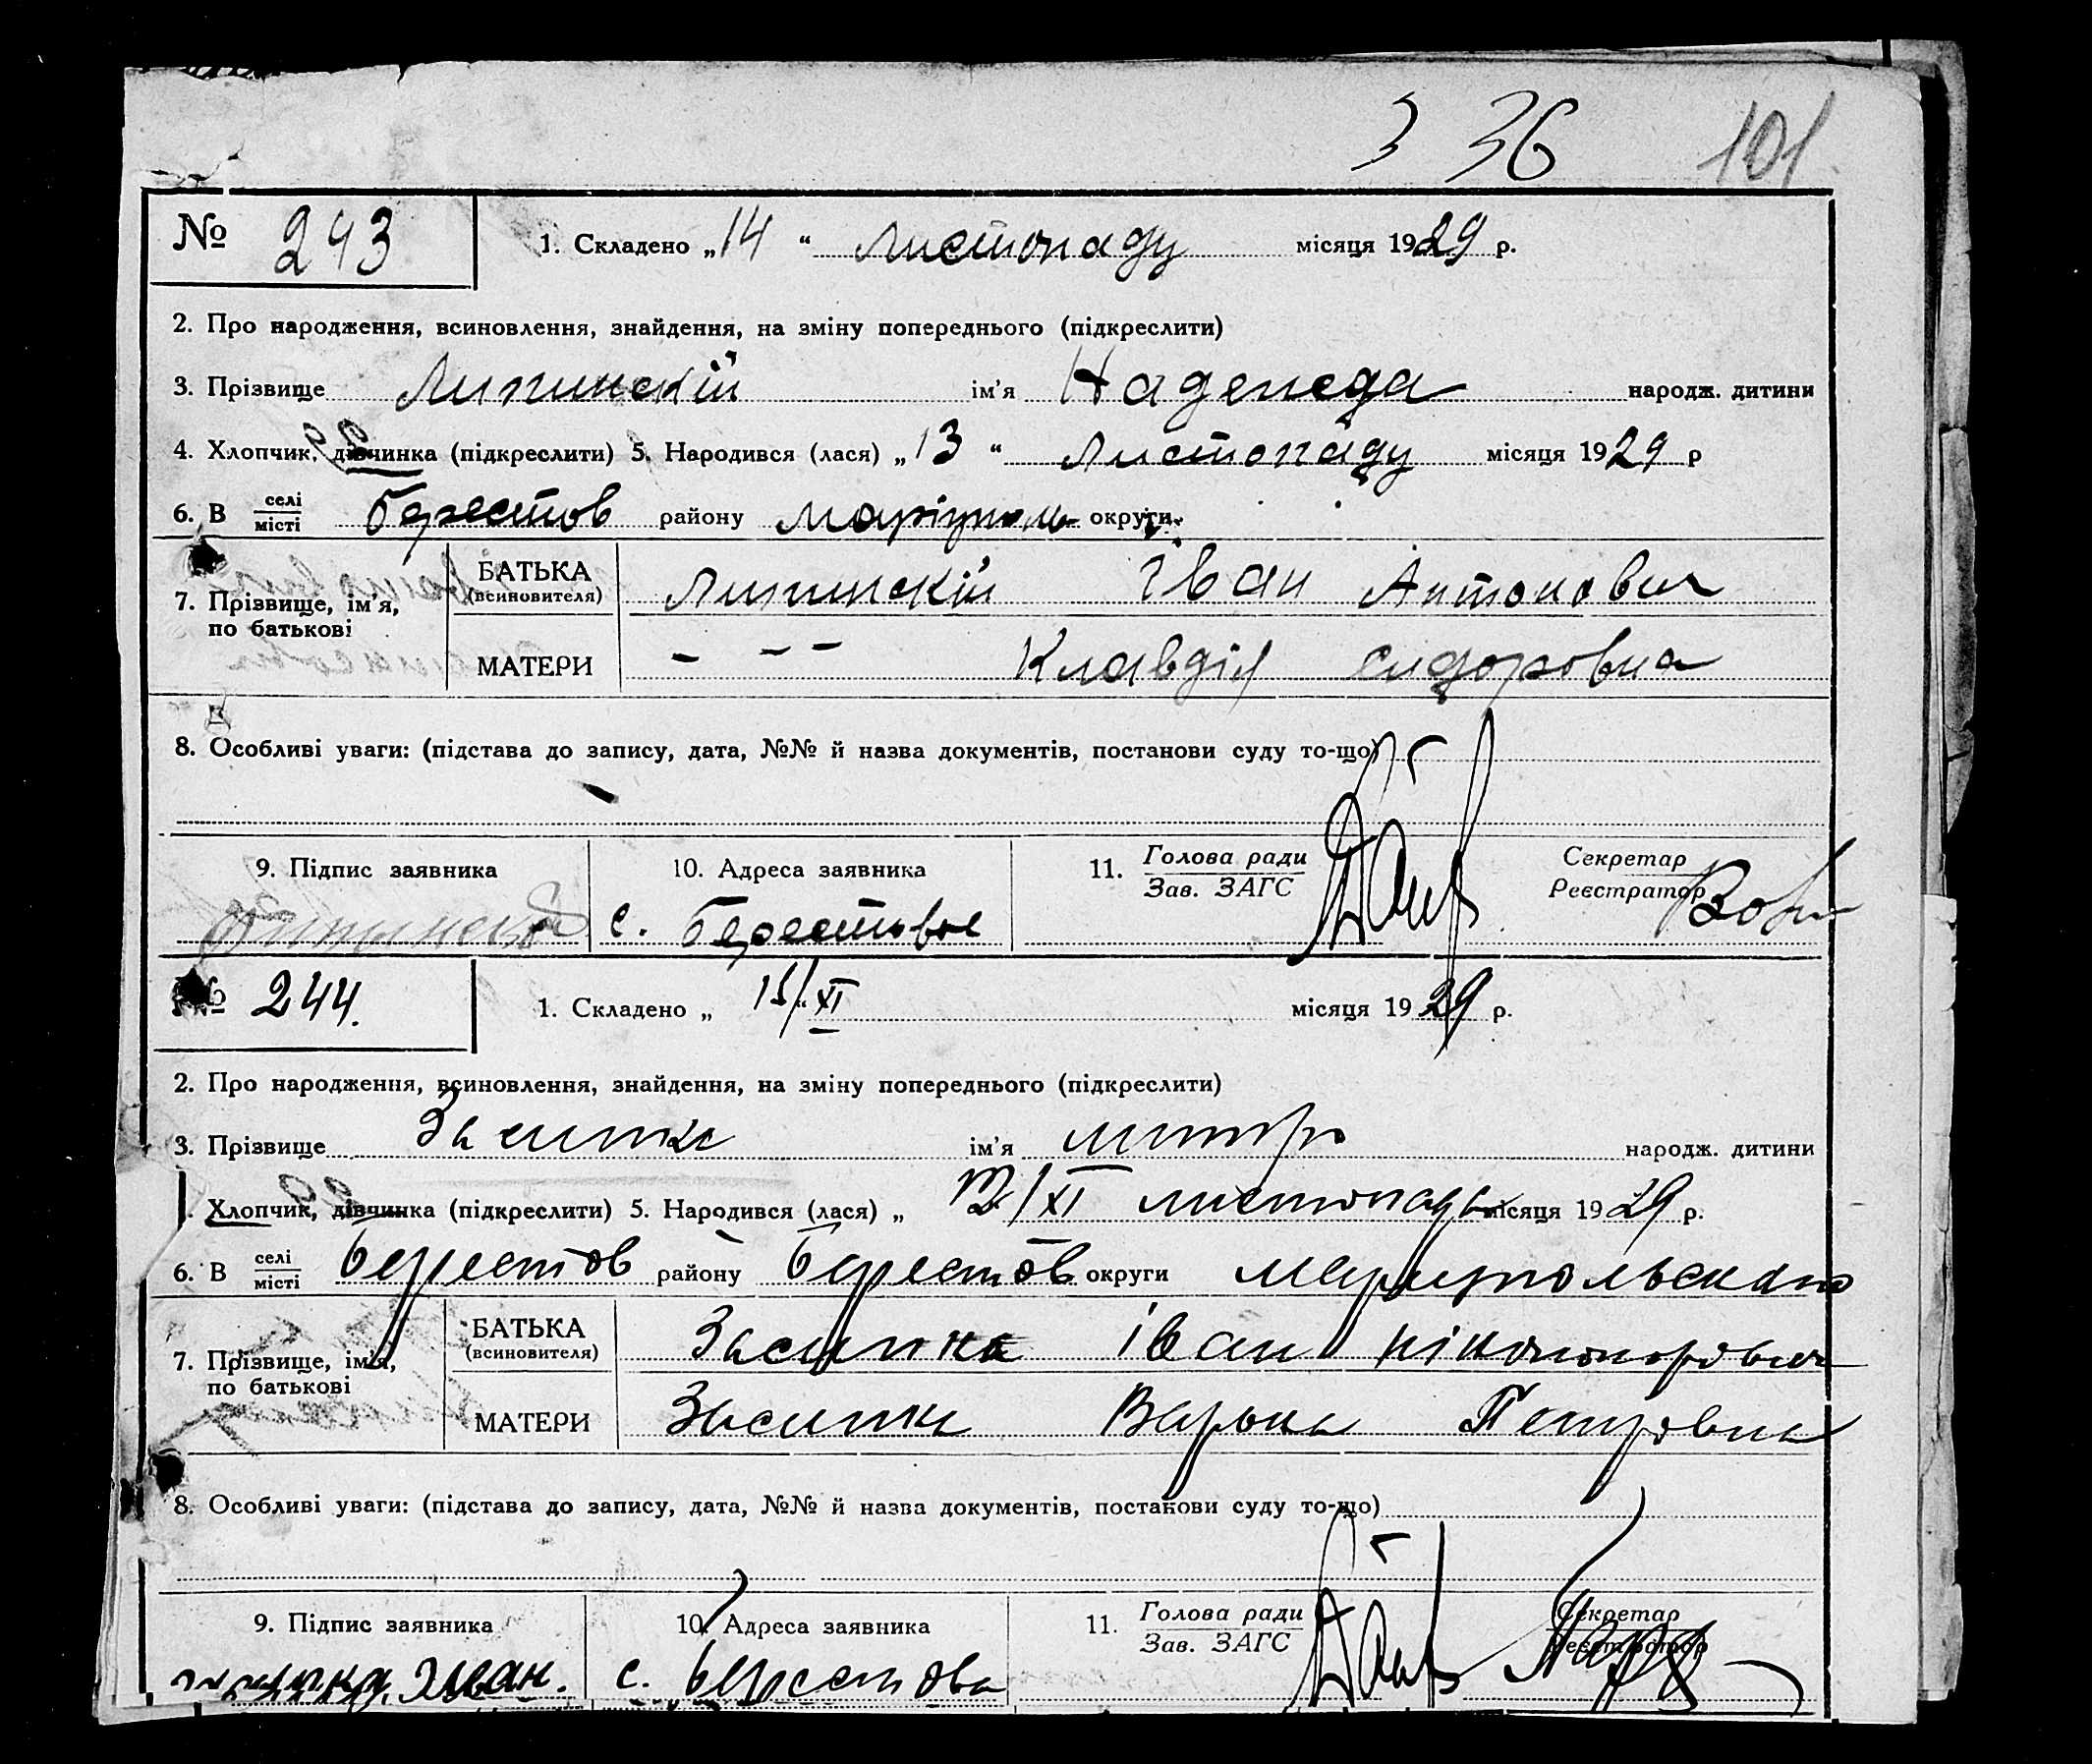 3 36 101
№ 243 1. Складено „14“ листопаду місяця 1929 р.
2. Про народження, всиновлення, знайдення, на зміну попереднього (підкреслити)
3. Прізвище Липинскій ім'я Надежда народж. дитини
4. Хлопчик, дівчинка (підкреслити) 5. Народився (лася) „13“ листопаду місяця 1929 р
6. В селі/місті Берестов району Маріуполь округи
7. Прізвище, ім'я, по батькові БАТЬКА (всиновителя) Липинскій Іван Антонович
МАТЕРИ - - - Клавдія Сидоровна
8. Особливі уваги: (підстава до запису, дата, №№ й назва документів, постанови суду то-що)
9. Підпис заявника 10. Адреса заявника 11. Голова ради/Зав. ЗАГС Секретар/Реєстратор
с. Берестовое
№ 244. 1. Складено „ 15/XI “ місяця 1929 р.
2. Про народження, всиновлення, знайдення, на зміну попереднього (підкреслити)
3. Прізвище Засипка ім'я митро народж. дитини
Хлопчик, дівчинка (підкреслити) 5. Народився (лася) „ 12/XI листопада місяця 1929 р.
6. В селі/місті Берестов району Берестов округи
7. Прізвище, ім'я, по батькові БАТЬКА (всиновителя) Засипка іван
МАТЕРИ Засипка Варька Петровна
8. Особливі уваги: (підстава до запису, дата, №№ й назва документів, постанови суду то-що)
9. Підпис заявника 10. Адреса заявника 11. Голова ради/Зав. ЗАГС Секретар/Реєстратор
с. Берестова